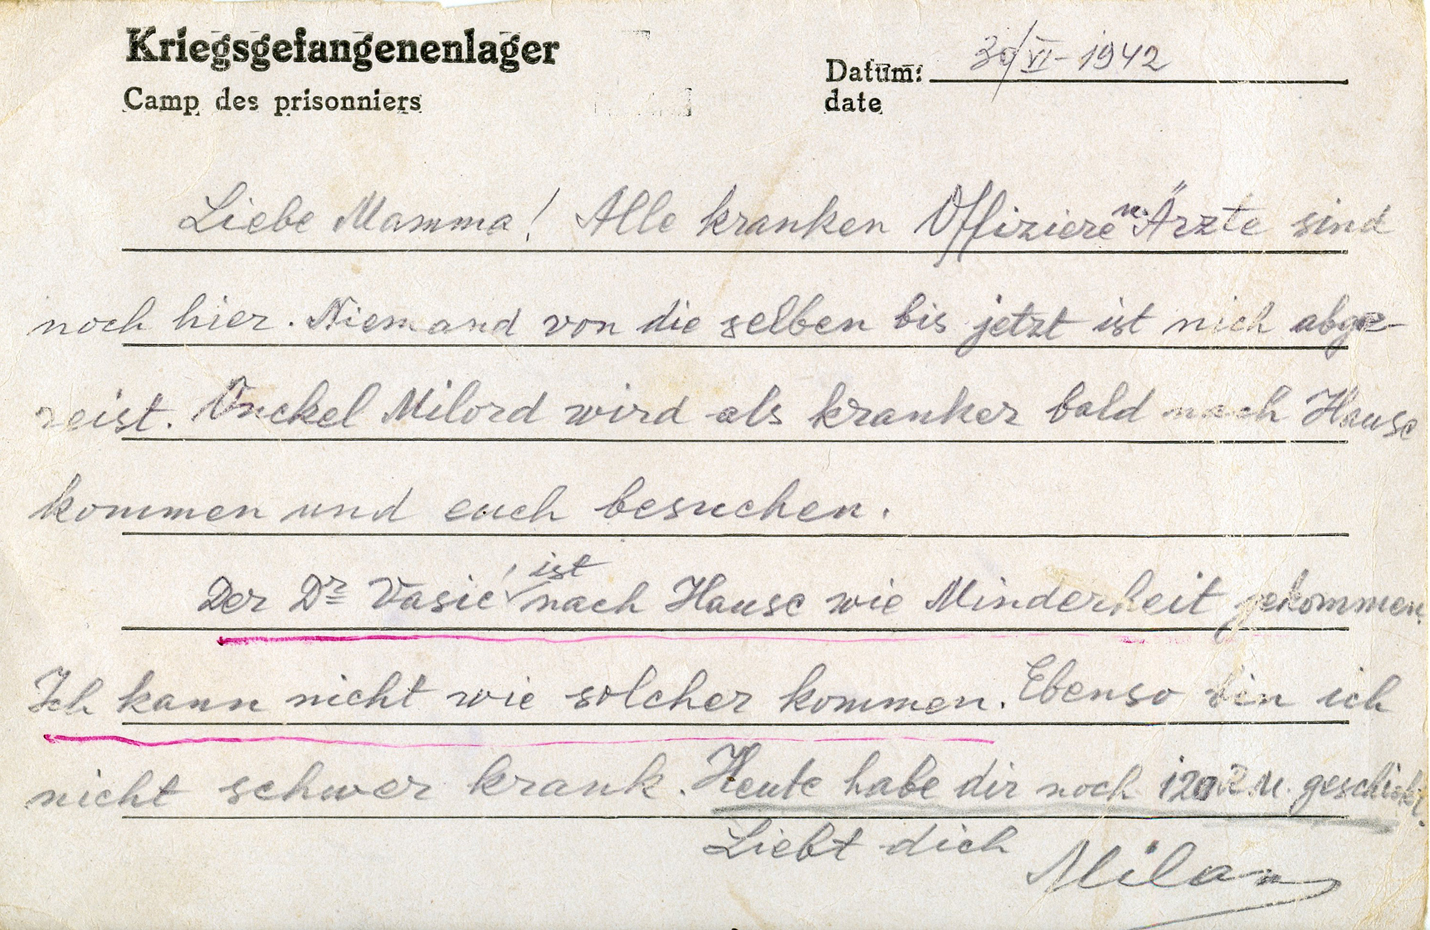 Kriegsgefangenenlager
Camp des prisonniers
Datum: 30/VI-1942
date
Liebe Mamma! Alle kranken Offiziere u. Ärzte sind
noch hier. Niemand von die selben bis jetzt ist nich abge-
reist. Onckel Milord wird als kranker bald nach Hause
kommen und euch besuchen.
Der Dr Vasić ist nach Hause wie Minderheit gekommen.
Ich kann nicht wie solcher kommen. Ebenso bin ich
nicht schwer krank. Heute habe dir noch 120 R.M. geschickt.
Liebt dich Milan